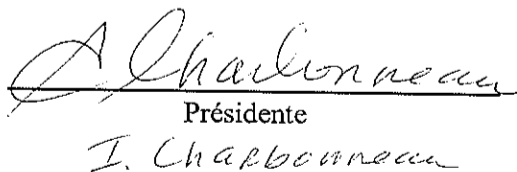 Charbonneau
Présidente
I. Charbonneau